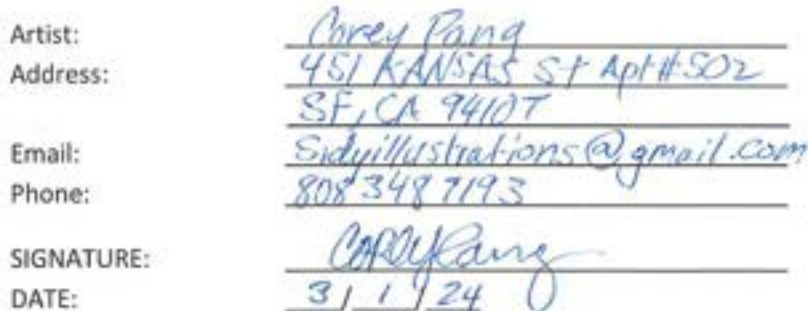 Artist: Corey Pang
Address: 451 KANSAS St Apt #502
SF, CA 94107
Email: Sidyillustrations@gmail.com
Phone: 808 348 7193
SIGNATURE: Corey Pang
DATE: 3 / 1 / 24